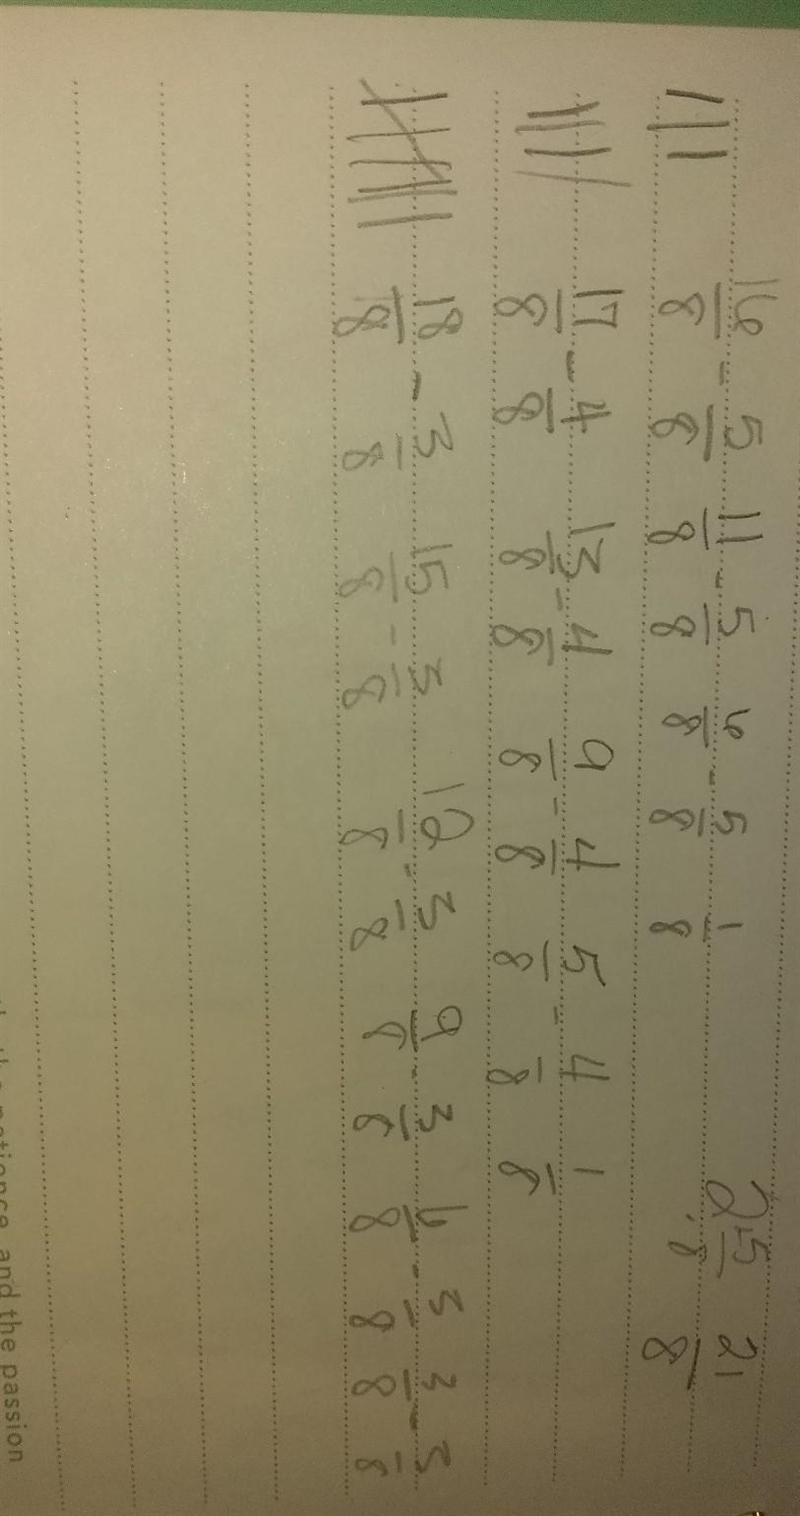 ||| 16/8 - 5/8 11/8 - 5/8 6/8 - 5/8 1/8 2 5/8 21/8
|||| 17/8 - 4/8 13/8 - 4/8 9/8 - 4/8 5/8 - 4/8 1/8
18/8 - 3/8 15/8 - 3/8 12/8 - 3/8 9/8 - 3/8 6/8 - 3/8 3/8 - 3/8
and the passion